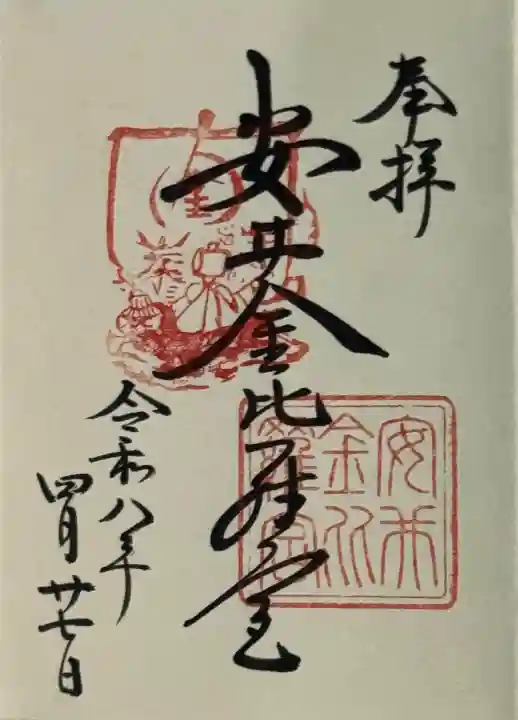 奉拝
安井金比羅宮
令和八年
四月廿七日
安井
金比
羅宮
金